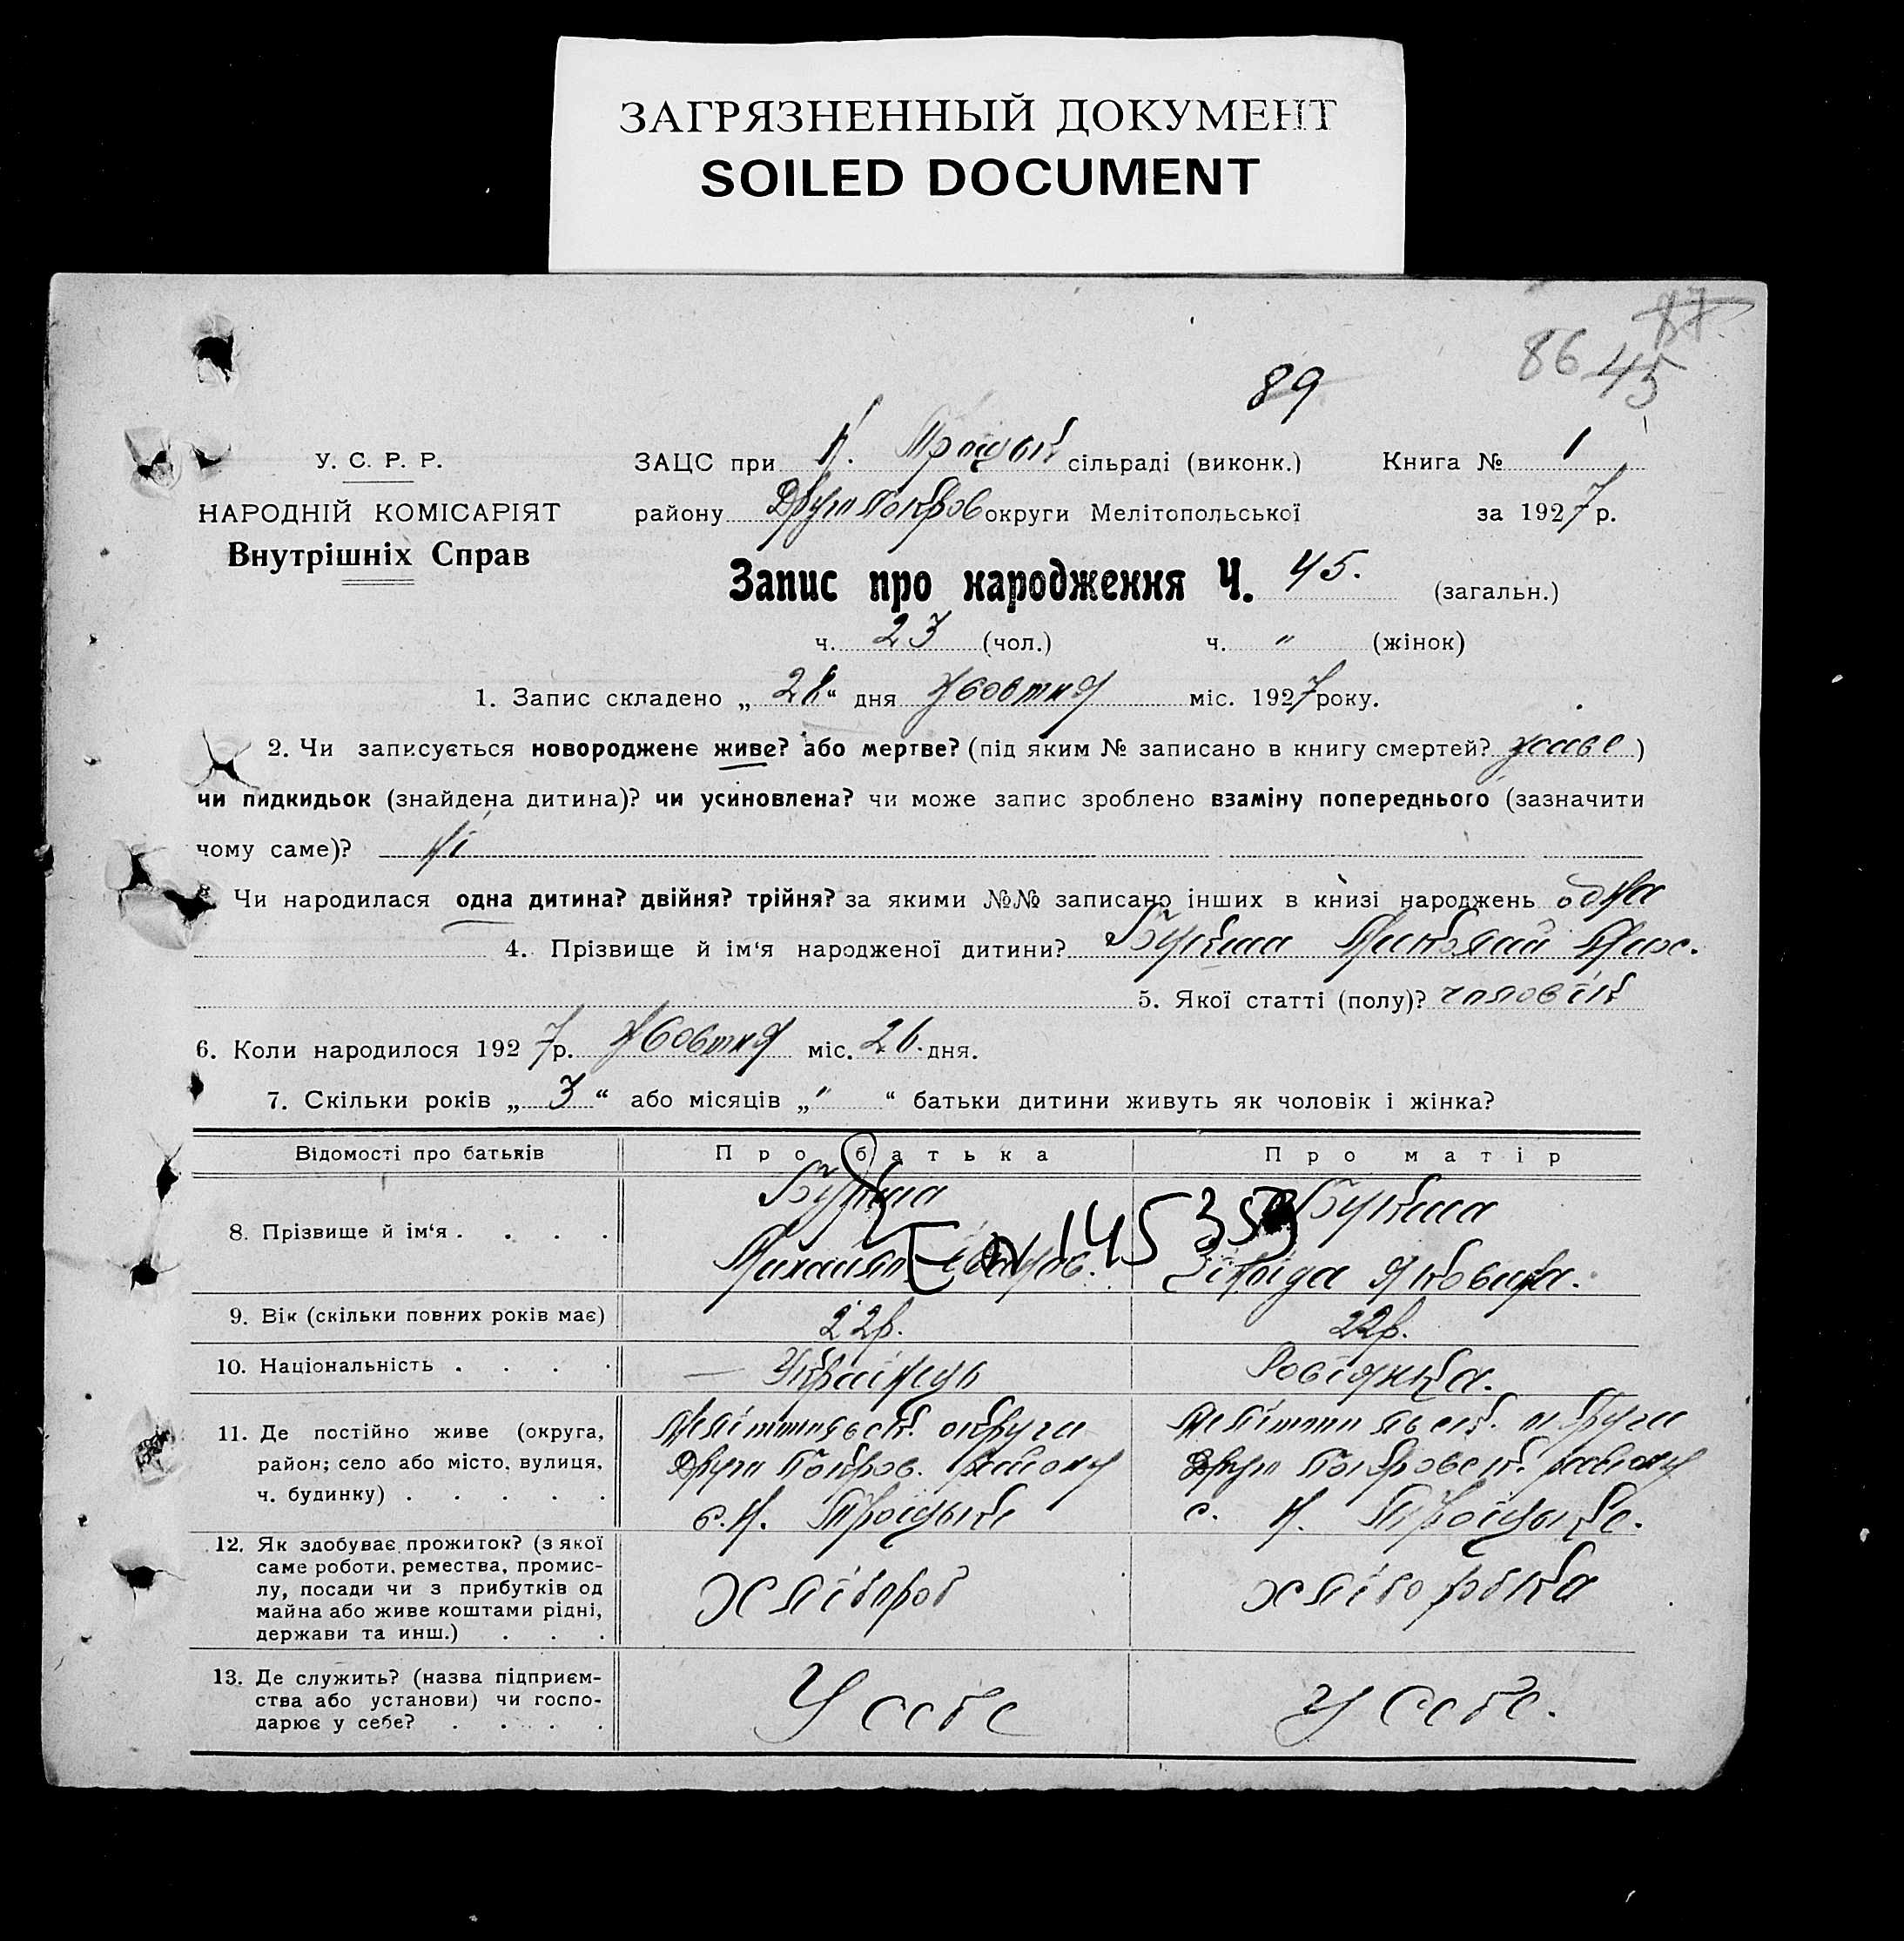 ЗАГРЯЗНЕННЫЙ ДОКУМЕНТ
SOILED DOCUMENT
87
86 45
89
У. С. Р. Р.
НАРОДНІЙ КОМІСАРІЯТ
Внутрішніх Справ
ЗАЦС при Н. Троцьк сільраді (виконк.) Книга № 1
району Друго Покров округи Мелітопольської за 1927 р.
Запис про народження Ч. 45. (загальн.)
ч. 23 (чол.) ч. " (жінок)
1. Запис складено „ 28 “ дня жовтня міс. 1927 року.
2. Чи записується новороджене живе? або мертве? (під яким № записано в книгу смертей? живе )
чи пидкидьок (знайдена дитина)? чи усиновлена? чи може запис зроблено взаміну попереднього (зазначити
чому саме)? Ні
Чи народилася одна дитина? двійня? трійня? за якими №№ записано інших в книзі народжень одна
4. Прізвище й ім‘я народженої дитини? Миколай Мих.
5. Якої статті (полу)? чоловік
6. Коли народилося 1927 р. Жовтня міс. 26. дня.
7. Скільки років „ 3 “ або місяців „ " “ батьки дитини живуть як чоловік і жінка?
Відомості про батьків Про батька Про матір
8. Прізвище й ім‘я . . . .
Михайло Іванов. Зінаїда Яковлна.
145 353
9. Вік (скільки повних років має) 22 р. 22 р.
10. Національність . . . . Українець Росіянка.
11. Де постійно живе (округа, район; село або місто, вулиця, ч. будинку) . . . . .
Мелітопольськ. округи
Друго Покров. району
с. Н. Троцьке
Мелітопольськ. округи
Друго Покровськ. району
с. Н. Троцьке.
12. Як здобуває прожиток? (з якої
саме роботи, ремества, промис-
лу, посади чи з прибутків од
майна або живе коштами рідні,
держави та инш.) . . .
Хлібороб хліборобка
13. Де служить? (назва підприєм-
ства або установи) чи госпо-
дарює у себе? . . . .
У себе У себе.